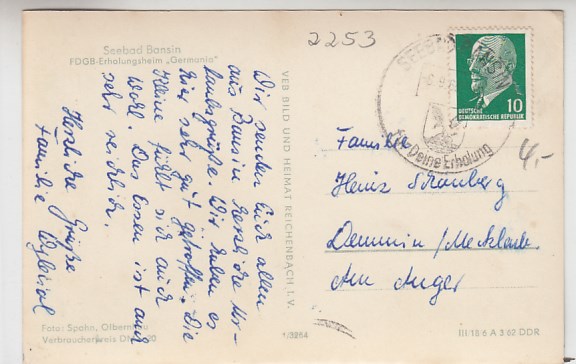 Seebad Bansin
FDGB-Erholungsheim „Germania"
2253
Wir senden Euch allen
aus Bansin herzliche Ur-
laubsgrüße. Wir haben es
hier sehr gut getroffen. Die
Kleine fühlt sich auch
wohl. Das Essen ist auch
sehr reichlich.
Herzliche Grüße
Familie
Foto: Spahn, Olbernhau
Verbraucherpreis DM
VEB BILD UND HEIMAT REICHENBACH I. V.
SEEBAD
Für Deine Erholung
10
DEUTSCHE
DEMOKRATISCHE REPUBLIK
4,-
Familie
Heinz
Demmin/Mecklenb.
Am Anger
III/18/6 A 3/62 DDR